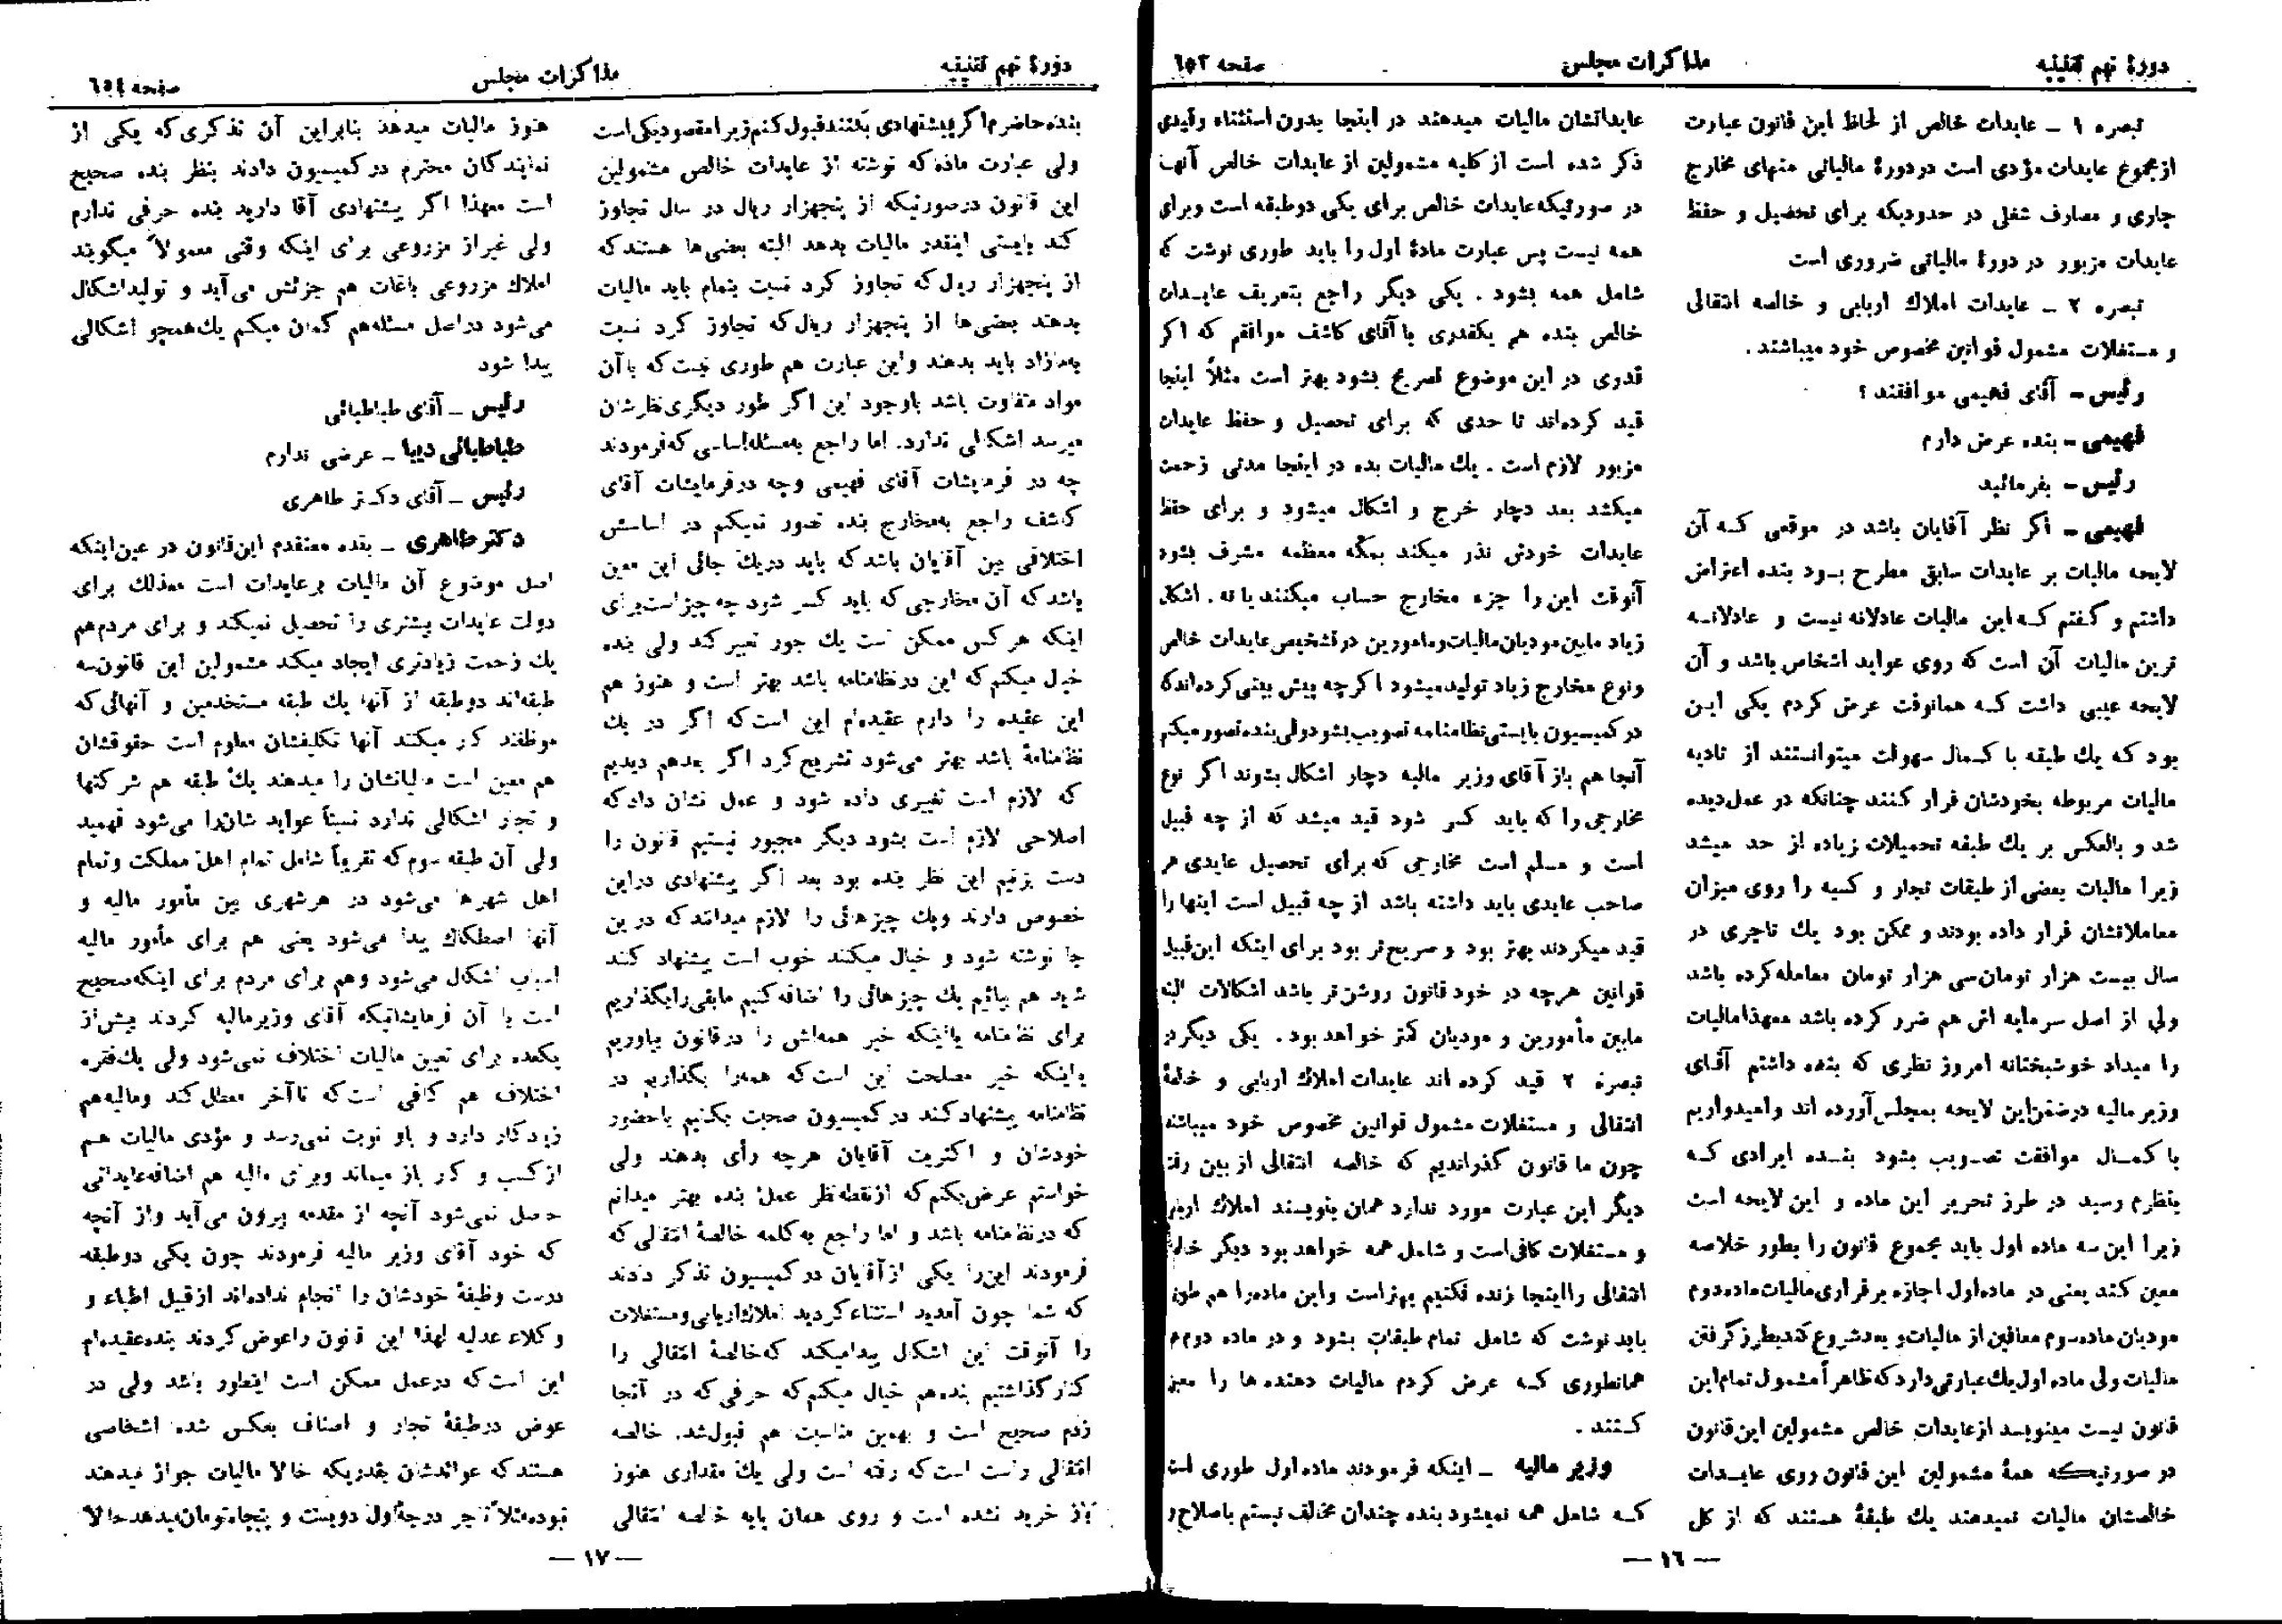 دورهٔ نهم تقنینیه
مذاکرات مجلس
صفحه ٦٥٣
تبصره ۱ ـ عایدات خالص از لحاظ این قانون عبارت
از مجموع عایدات مؤدی است در دورهٔ مالیاتی منهای مخارج
جاری و مصارف شغلی در حدودیکه برای تحصیل و حفظ
عایدات مزبور در دورهٔ مالیاتی ضروری است
تبصره ۲ ـ عایدات املاك اربابی و خالصه انتقالی
و مستغلات مشمول قوانین مخصوص خود میباشند .
رئیس ـ آقای فهیمی موافقند ؟
فهیمی ـ بنده عرض دارم
رئیس ـ بفرمائید
فهیمی ـ اگر نظر آقایان باشد در موقعی کـه آن
لایحه مالیات بر عایدات سابق مطرح بـود بنده اعتراض
داشتم و گفتم کـه این مالیات عادلانه نیست و عادلانـه
ترین مالیات آن است که روی عواید اشخاص باشد و آن
لایحه عیبی داشت کـه همانوقت عرض کردم یکی ایـن
بود که یك طبقه با کـمال سهولت میتوانستند از تادیه
مالیات مربوطه بخودشان فرار کنند چنانکه در عمل دیده
شد و بالعکس بر یك طبقه تحمیلات زیاده از حد میشد
زیرا مالیات بعضی از طبقات تجار و کسبه را روی میزان
معاملاتشان قرار داده بودند و ممکن بود یك تاجری در
سال بیست هزار تومان سی هزار تومان معامله کرده باشد
ولی از اصل سرمایه اش هم ضرر کرده باشد معهذا مالیات
را میداد خوشبختانه امروز نظری که بنده داشتم آقـای
وزیر مالیه در ضمن این لایحه بمجلس آورده اند و امیدواریم
با کمـال موافقت تصـویب بشود بنـده ایرادی کـه
بنظرم رسید در طرز تحریر این ماده و این لایحه است
زیرا این سه ماده اول باید مجموع قانون را بطور خلاصه
معین کند یعنی در ماده اول اجازه برقراری مالیات ماده دوم
مودیان ماده سوم معافین از مالیات و بعد شروع کند بطرز گرفتن
مالیات ولی ماده اول یك عبارتی دارد که ظاهراً مشمول تمام این
قانون نیست مینویسد از عایدات خالص مشمولین این قانون
در صورتیـکه همهٔ مشمولین این قانون روی عایـدات
خالصشان مالیات نمیدهند یك طبقهٔ هستند که از کل
عایداتشان مالیات میدهند در اینجا بدون استثناء و قیدی
ذکر شده است از کلیه مشمولین از عایدات خالص آنها
در صورتیکه عایدات خالص برای یکی دو طبقه است و برای
همه نیست پس عبارت مادهٔ اول را باید طوری نوشت که
شامل همه بشود . یکی دیگر راجع بتعریف عایـدات
خالص بنده هم یکقدری با آقای کاشف موافقم که اگر
قدری در این موضوع تصریح بشود بهتر است مثلاً اینجا
قید کرده‌اند تا حدی که برای تحصیل و حفظ عایدات
مزبور لازم است . یك مالیات بده در اینجا مدتی زحمت
میکشد بعد دچار خرج و اشکال میشود و برای حفظ
عایدات خودش نذر میکند بمکّه معظمه مشرف بشود
آنوقت این را جزء مخارج حساب میکنند یا نه . اشکال
زیاد مابین مودیان مالیات و مامورین در تشخیص عایدات خالص
و نوع مخارج زیاد تولید میشود اگر چه پیش بینی کرده‌اند که
در کمیسیون بایستی نظامنامه تصویب بشود ولی بنده تصور میکنم
آنجا هم باز آقای وزیر مالیه دچار اشکال بشوند اگر نوع
مخارجی را که باید کسر شود قید میشد که از چه قبیل
است و مسلم است مخارجی که برای تحصیل عایدی هر
صاحب عایدی باید داشته باشد از چه قبیل است اینها را
قید میکردند بهتر بود و صریح‌تر بود برای اینکه این قبیل
قوانین هرچه در خود قانون روشن‌تر باشد اشکالات البته
مابین مأمورین و مودیان کمتر خواهد بود . یکی دیگر در
تبصره ۲ قید کرده اند عایدات املاك اربابی و خالصهٔ
انتقالی و مستغلات مشمول قوانین مخصوص خود میباشند
چون ما قانون گذراندیم که خالصه انتقالی از بین رفته
دیگر این عبارت مورد ندارد همان بنویسند املاك اربابی
و مستغلات کافی است و شامل همه خواهد بود دیگر خالصه
انتقالی را اینجا زنده نکنیم بهتر است و این ماده را هم طوری
باید نوشت که شامل تمام طبقات بشود و در ماده دوم هم
همانطوری کـه عرض کردم مالیات دهنده ها را معین
کـنند .
وزیر مالیه ـ اینکه فرمودند ماده اول طوری است
کـه شامل همه نمیشود بنده چندان مخالف نیستم باصلاح و
— ١٦ —
دورهٔ نهم تقنینیه
مذاکرات مجلس
صفحه ٦٥٤
بنده حاضرم اگر پیشنهادی بکنند قبول کنم زیرا مقصود یکی است
ولی عبارت ماده که نوشته از عایدات خالص مشمولین
این قانون در صورتیکه از پنجهزار ریال در سال تجاوز
کند بایستی اینقدر مالیات بدهد البته بعضی‌ها هستند که
از پنجهزار ریال که تجاوز کرد نسبت بتمام باید مالیات
بدهند بعضی‌ها از پنجهزار ریال که تجاوز کرد نسبت
به مازاد باید بدهند و این عبارت هم طوری نیست که با آن
مواد متفاوت باشد با وجود این اگر طور دیگری نظرشان
میرسد اشکالی ندارد. اما راجع به مسئله اساسی که فرمودند
چه در فرمایشات آقای فهیمی وچه در فرمایشات آقای
کاشف راجع به مخارج بنده تصور نمیکنم در اساسش
اختلافی بین آقایان باشد که باید در یك جائی این معین
باشد که آن مخارجی که باید کسر شود چه چیز است برای
اینکه هر کس ممکن است یك جور تعبیر کند ولی بنده
خیال میکنم که این در نظامنامه باشد بهتر است و هنوز هم
این عقیده را دارم عقیده‌ام این است که اگر در یك
نظامنامهٔ باشد بهتر می‌شود تشریح کرد اگر بعد هم دیدیم
که لازم است تغییری داده شود و عمل نشان داد که
اصلاحی لازم است بشود دیگر مجبور نیستیم قانون را
دست بزنیم این نظر بنده بود بعد اگر پیشنهادی در این
خصوص دارند و یك چیزهائی را لازم میدانند که در این
جا نوشته شود و خیال میکنند خوب است پیشنهاد کنند
شاید هم بیائیم یك چیزهائی را اضافه کنیم مابقی را بگذاریم
برای نظامنامه یا اینکه خیر همه‌اش را در قانون بیاوریم
یا اینکه خیر مصلحت این است که همه را بگذاریم در
نظامنامه پیشنهاد کنند در کمیسیون صحبت بکنیم با حضور
خودشان و اکثریت آقایان هرچه رأی بدهند ولی
خواستم عرض بکنم که از نقطه نظر عمل بنده بهتر میدانم
که در نظامنامه باشد و اما راجع به کلمه خالصهٔ انتقالی که
فرمودند این را یکی از آقایان در کمیسیون تذکر دادند
که شما چون آمدید استثناء کردید املاك اربابی و مستغلات
را آنوقت این اشکال پیدا میکند که خالصهٔ انتقالی را
کنار گذاشتیم بنده هم خیال میکنم که حرفی که در آنجا
زدم صحیح است و بهمین مناسبت هم قبول شد. خالصه
انتقالی راست است که رفته است ولی یك مقداری هنوز
باز خرید نشده است و روی همان پایه خالصه انتقالی
هنوز مالیات میدهد بنابراین آن تذکری که یکی از
نمایندگان محترم در کمیسیون دادند بنظر بنده صحیح
است معهذا اگر پیشنهادی آقا دارید بنده حرفی ندارم
ولی غیر از مزروعی برای اینکه وقتی معمولاً میگویند
املاك مزروعی باغات هم جزئش می‌آید و تولید اشکال
می‌شود در اصل مسئله هم گمان میکنم یك همچو اشکالی
پیدا شود
رئیس ـ آقای طباطبائی
طباطبائی دیبا ـ عرضی ندارم
رئیس ـ آقای دکتر طاهری
دکتر طاهری ـ بنده معتقدم این قانون در عین اینکه
اصل موضوع آن مالیات بر عایدات است معذلك برای
دولت عایدات بیشتری را تحصیل نمیکند و برای مردم هم
یك زحمت زیادتری ایجاد میکند مشمولین این قانون سه
طبقه‌اند دو طبقه از آنها یك طبقه مستخدمین و آنهائی که
موظفند کار میکنند آنها تکلیفشان معلوم است حقوقشان
هم معین است مالیاتشان را میدهند یك طبقه هم شرکتها
و تجار اشکالی ندارد نسبتاً عواید شان را می‌شود فهمید
ولی آن طبقه سوم که تقریباً شامل تمام اهل مملکت و تمام
اهل شهرها می‌شود در هر شهری بین مأمور مالیه و
آنها اصطکاك پیدا می‌شود یعنی هم برای مأمور مالیه
اسباب اشکال می‌شود و هم برای مردم برای اینکه صحیح
است با آن فرمایشاتیکه آقای وزیر مالیه کردند بیش از
یکعده برای تعیین مالیات اختلاف نمی‌شود ولی یك فقره
اختلاف هم کافی است که تا آخر معطل کند و مالیه هم
زیاد کار دارد و باو نوبت نمی‌رسد و مؤدی مالیات هـم
از کسب و کار باز میماند و برای مالیه هم اضافه عایداتی
حاصل نمی‌شود آنچه از مقدمه بیرون می‌آید و از آنچه
که خود آقای وزیر مالیه فرمودند چون یکی دو طبقه
درست وظیفهٔ خودشان را انجام نداده‌اند از قبیل اطباء و
وکلاء عدلیه لهذا این قانون را عوض کردند بنده عقیده‌ام
این است که در عمل ممکن است اینطور باشد ولی در
عوض در طبقهٔ تجار و اصناف بعکس شده اشخاصی
هستند که عوائدشان بقدریکه حالا مالیات جواز میدهند
نبوده مثلاً تاجر درجهٔ اول دویست و پنجاه تومان میدهد حالا
— ١٧ —